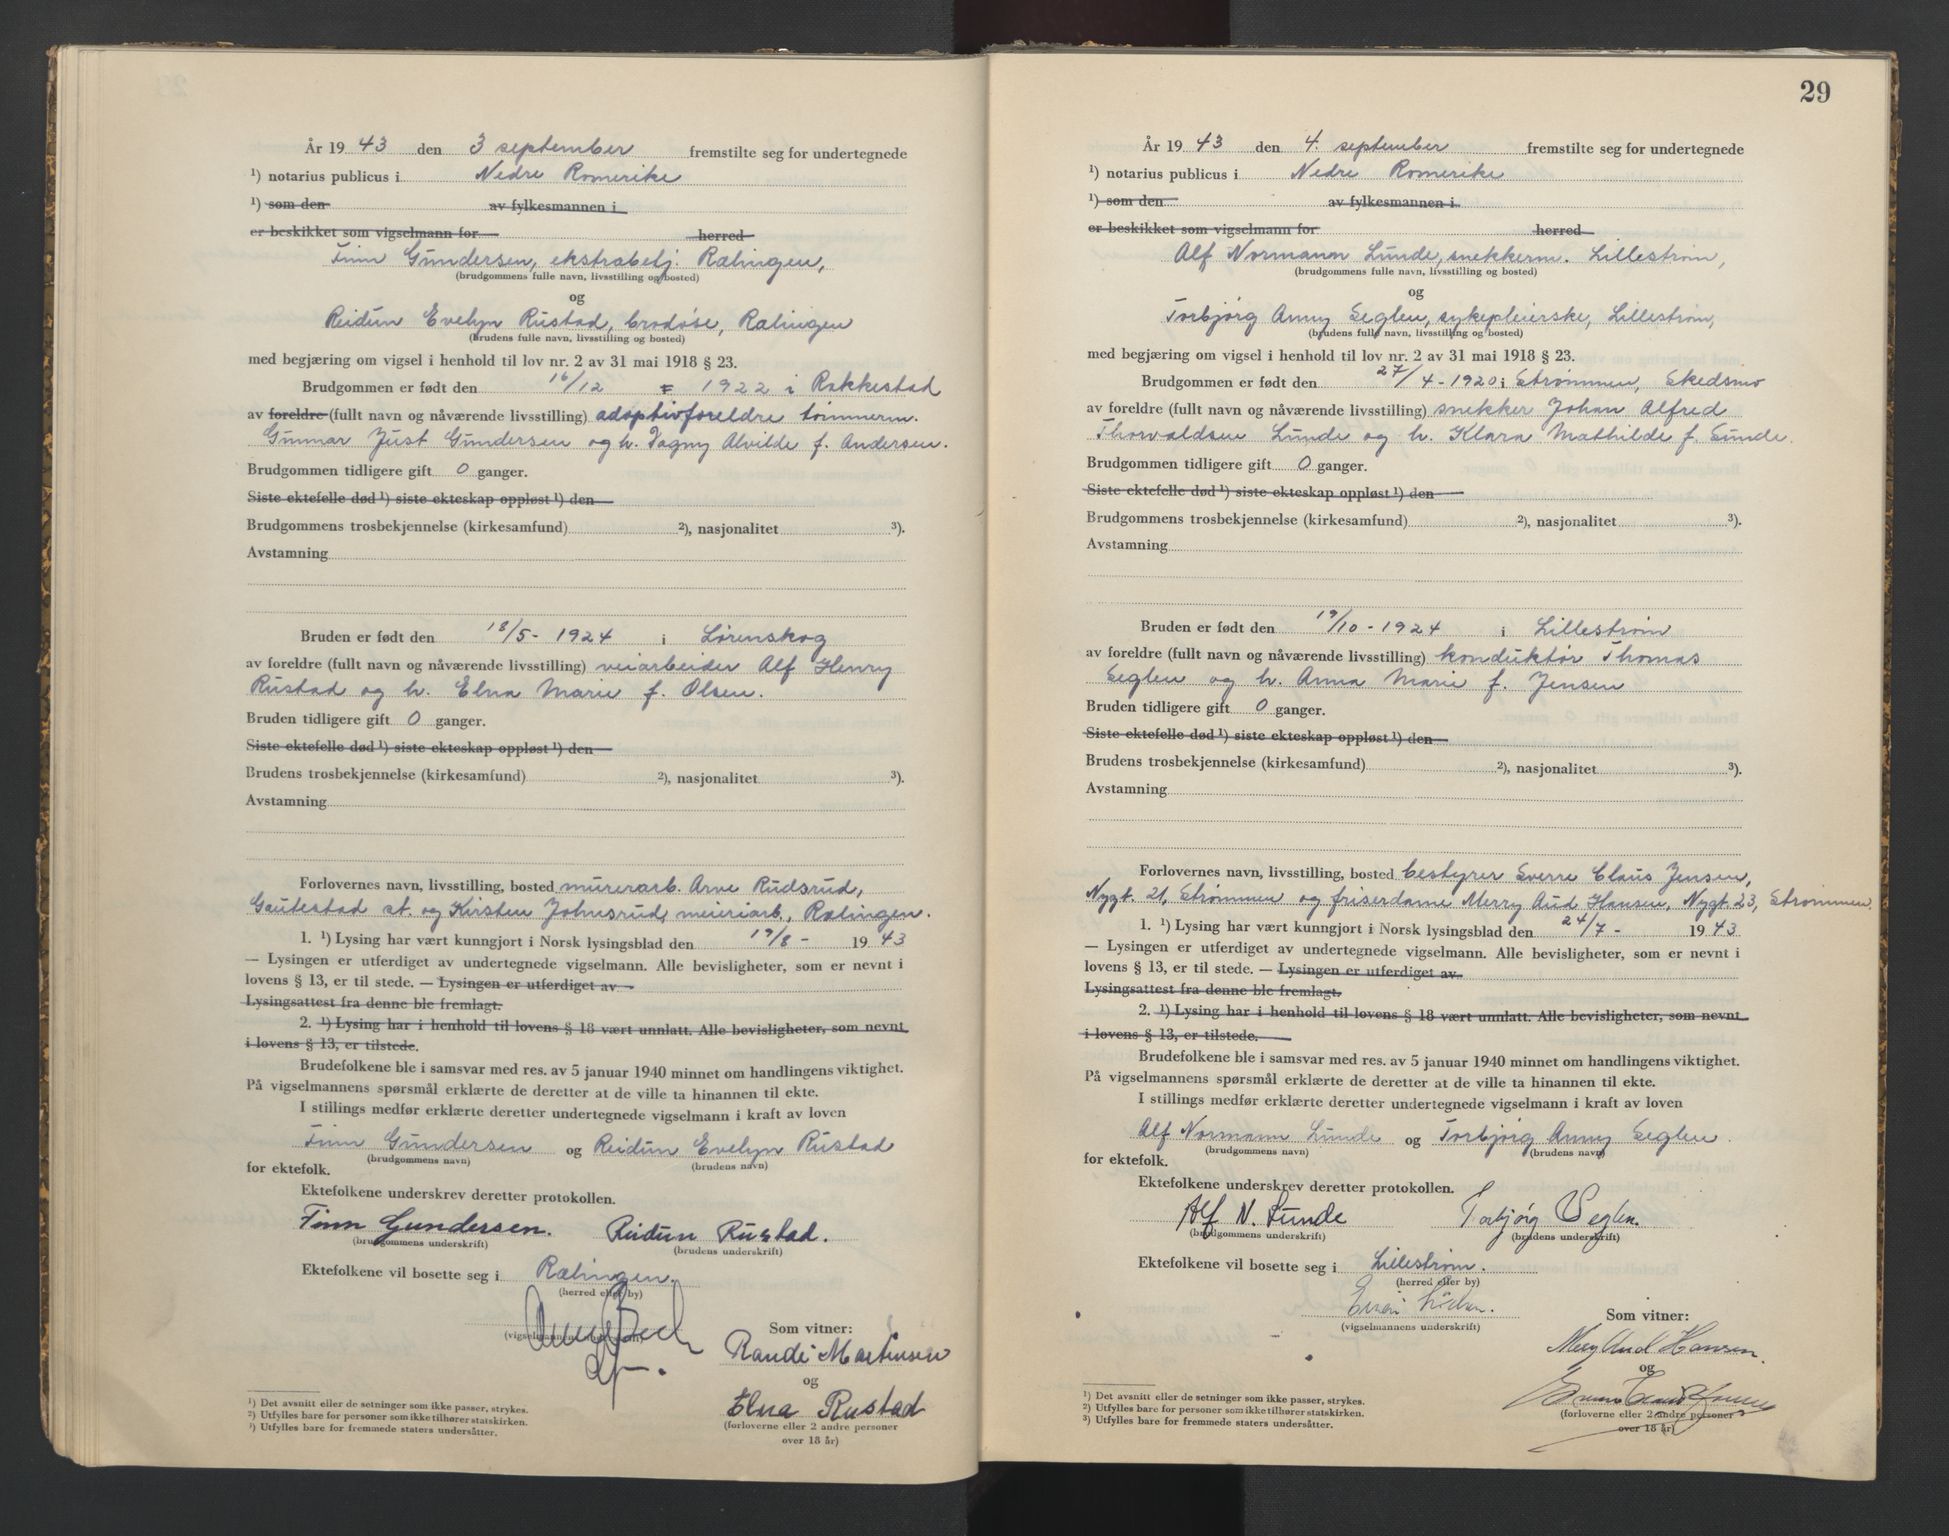 År 19 43 den 3 september fremstilte seg for undertegnede
¹) notarius publicus i Nedre Romerike
¹) som den av fylkesmannen i
er beskikket som vigselmann for herred
Finn Gundersen, ekstrabetj. Rælingen,
(brudgommens fulle navn, livsstilling og bosted)
og
Reidun Evelyn Rustad, brodøse, Rælingen
(brudens fulle navn, livsstilling og bosted)
med begjæring om vigsel i henhold til lov nr. 2 av 31 mai 1918 § 23.
Brudgommen er født den 16/12 - 1922 i Rakkestad
av foreldre (fullt navn og nåværende livsstilling) adoptivforeldre tømmerm.
Gunnar Just Gundersen og h. Dagny Alvilde f. Andersen.
Brudgommen tidligere gift 0 ganger.
Siste ektefelle død ¹) siste ekteskap oppløst ¹) den
Brudgommens trosbekjennelse (kirkesamfund) ²), nasjonalitet ³).
Avstamning
Bruden er født den 18/5 - 1924 i Lørenskog
av foreldre (fullt navn og nåværende livsstilling) veiarbeider Alf Henry
Rustad og h. Elna Marie f. Olsen.
Bruden tidligere gift 0 ganger.
Siste ektefelle død ¹) siste ekteskap oppløst ¹) den
Brudens trosbekjennelse (kirkesamfund) ²), nasjonalitet ³).
Avstamning
Forlovernes navn, livsstilling, bosted murerarb. Arve Rudsrud,
Gautestad st. og Kirsten Johnsrud, meieriarb., Rælingen.
1. ¹) Lysing har vært kunngjort i Norsk lysingsblad den 19/8 - 19 43
— Lysingen er utferdiget av undertegnede vigselmann. Alle bevisligheter, som er nevnt i
lovens § 13, er til stede. — Lysingen er utferdiget av
Lysingsattest fra denne ble fremlagt.
2. ¹) Lysing har i henhold til lovens § 18 vært unnlatt. Alle bevisligheter, som nevnt
i lovens § 13, er tilstede.
Brudefolkene ble i samsvar med res. av 5 januar 1940 minnet om handlingens viktighet.
På vigselmannens spørsmål erklærte de deretter at de ville ta hinannen til ekte.
I stillings medfør erklærte deretter undertegnede vigselmann i kraft av loven
Finn Gundersen og Reidun Evelyn Rustad
(brudgommens navn) (brudens navn)
for ektefolk.
Ektefolkene underskrev deretter protokollen.
Finn Gundersen. Reidun Rustad.
(brudgommens underskrift) (brudens underskrift)
Ektefolkene vil bosette seg i Rælingen.
(herred eller by)
Som vitner:
(vigselmannens underskrift)
Randi Martinsen
og
Elna Rustad
(forloverne eller 2 andre personer
over 18 år)
¹) Det avsnitt eller de setninger som ikke passer, strykes.
²) Utfylles bare for personer som ikke tilhører statskirken.
³) Utfylles bare for fremmede staters undersåtter.
29
År 19 43 den 4. september fremstilte seg for undertegnede
¹) notarius publicus i Nedre Romerike
¹) som den av fylkesmannen i
er beskikket som vigselmann for herred
Alf Normann Lunde, snekkerm. Lillestrøm,
(brudgommens fulle navn, livsstilling og bosted)
og
Torbjørg Anny Seglen, sykepleierske, Lillestrøm,
(brudens fulle navn, livsstilling og bosted)
med begjæring om vigsel i henhold til lov nr. 2 av 31 mai 1918 § 23.
Brudgommen er født den 27/4 - 1920 i Strømmen, Skedsmo
av foreldre (fullt navn og nåværende livsstilling) snekker Johan Alfred
Thorvaldsen Lunde og h. Klara Mathilde f. Sunde.
Brudgommen tidligere gift 0 ganger.
Siste ektefelle død ¹) siste ekteskap oppløst ¹) den
Brudgommens trosbekjennelse (kirkesamfund) ²), nasjonalitet ³).
Avstamning
Bruden er født den 19/10 - 1924 i Lillestrøm
av foreldre (fullt navn og nåværende livsstilling) konduktør Thomas
Seglen og h. Anna Marie f. Jensen
Bruden tidligere gift 0 ganger.
Siste ektefelle død ¹) siste ekteskap oppløst ¹) den
Brudens trosbekjennelse (kirkesamfund) ²), nasjonalitet ³).
Avstamning
Forlovernes navn, livsstilling, bosted bestyrer Sverre Claus Jensen,
Nygt. 21, Strømmen og friserdame Merry Aud Hansen, Nygt. 23, Strømmen.
1. ¹) Lysing har vært kunngjort i Norsk lysingsblad den 24/7 - 19 43
— Lysingen er utferdiget av undertegnede vigselmann. Alle bevisligheter, som er nevnt i
lovens § 13, er til stede. — Lysingen er utferdiget av
Lysingsattest fra denne ble fremlagt.
2. ¹) Lysing har i henhold til lovens § 18 vært unnlatt. Alle bevisligheter, som nevnt
i lovens § 13, er tilstede.
Brudefolkene ble i samsvar med res. av 5 januar 1940 minnet om handlingens viktighet.
På vigselmannens spørsmål erklærte de deretter at de ville ta hinannen til ekte.
I stillings medfør erklærte deretter undertegnede vigselmann i kraft av loven
Alf Normann Lunde og Torbjørg Anny Seglen.
(brudgommens navn) (brudens navn)
for ektefolk.
Ektefolkene underskrev deretter protokollen.
Alf N. Lunde Torbjørg Seglen.
(brudgommens underskrift) (brudens underskrift)
Ektefolkene vil bosette seg i Lillestrøm.
(herred eller by)
Som vitner:
(vigselmannens underskrift)
Merry Aud Hansen.
og
(forloverne eller 2 andre personer
over 18 år)
¹) Det avsnitt eller de setninger som ikke passer, strykes.
²) Utfylles bare for personer som ikke tilhører statskirken.
³) Utfylles bare for fremmede staters undersåtter.